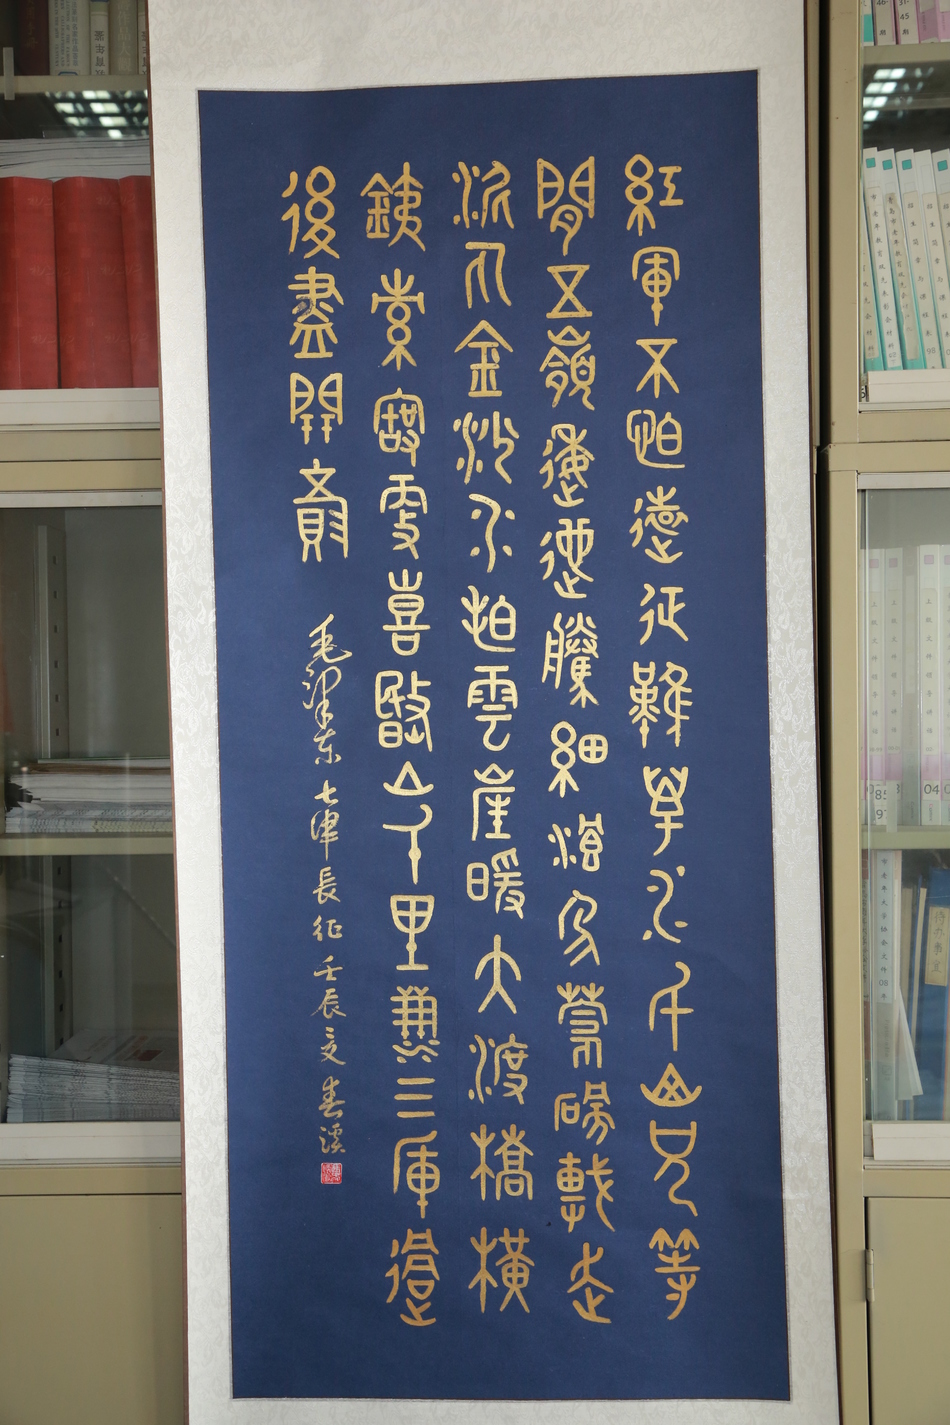 紅軍不怕遠征難萬水千山只等
閒五嶺逶迤騰細浪烏蒙磅礴走
泥丸金沙水拍雲崖暖大渡橋橫
銕索寒更喜岷山千里雪三軍過
後盡開顏
毛澤東七律長征 壬辰夏 春溪